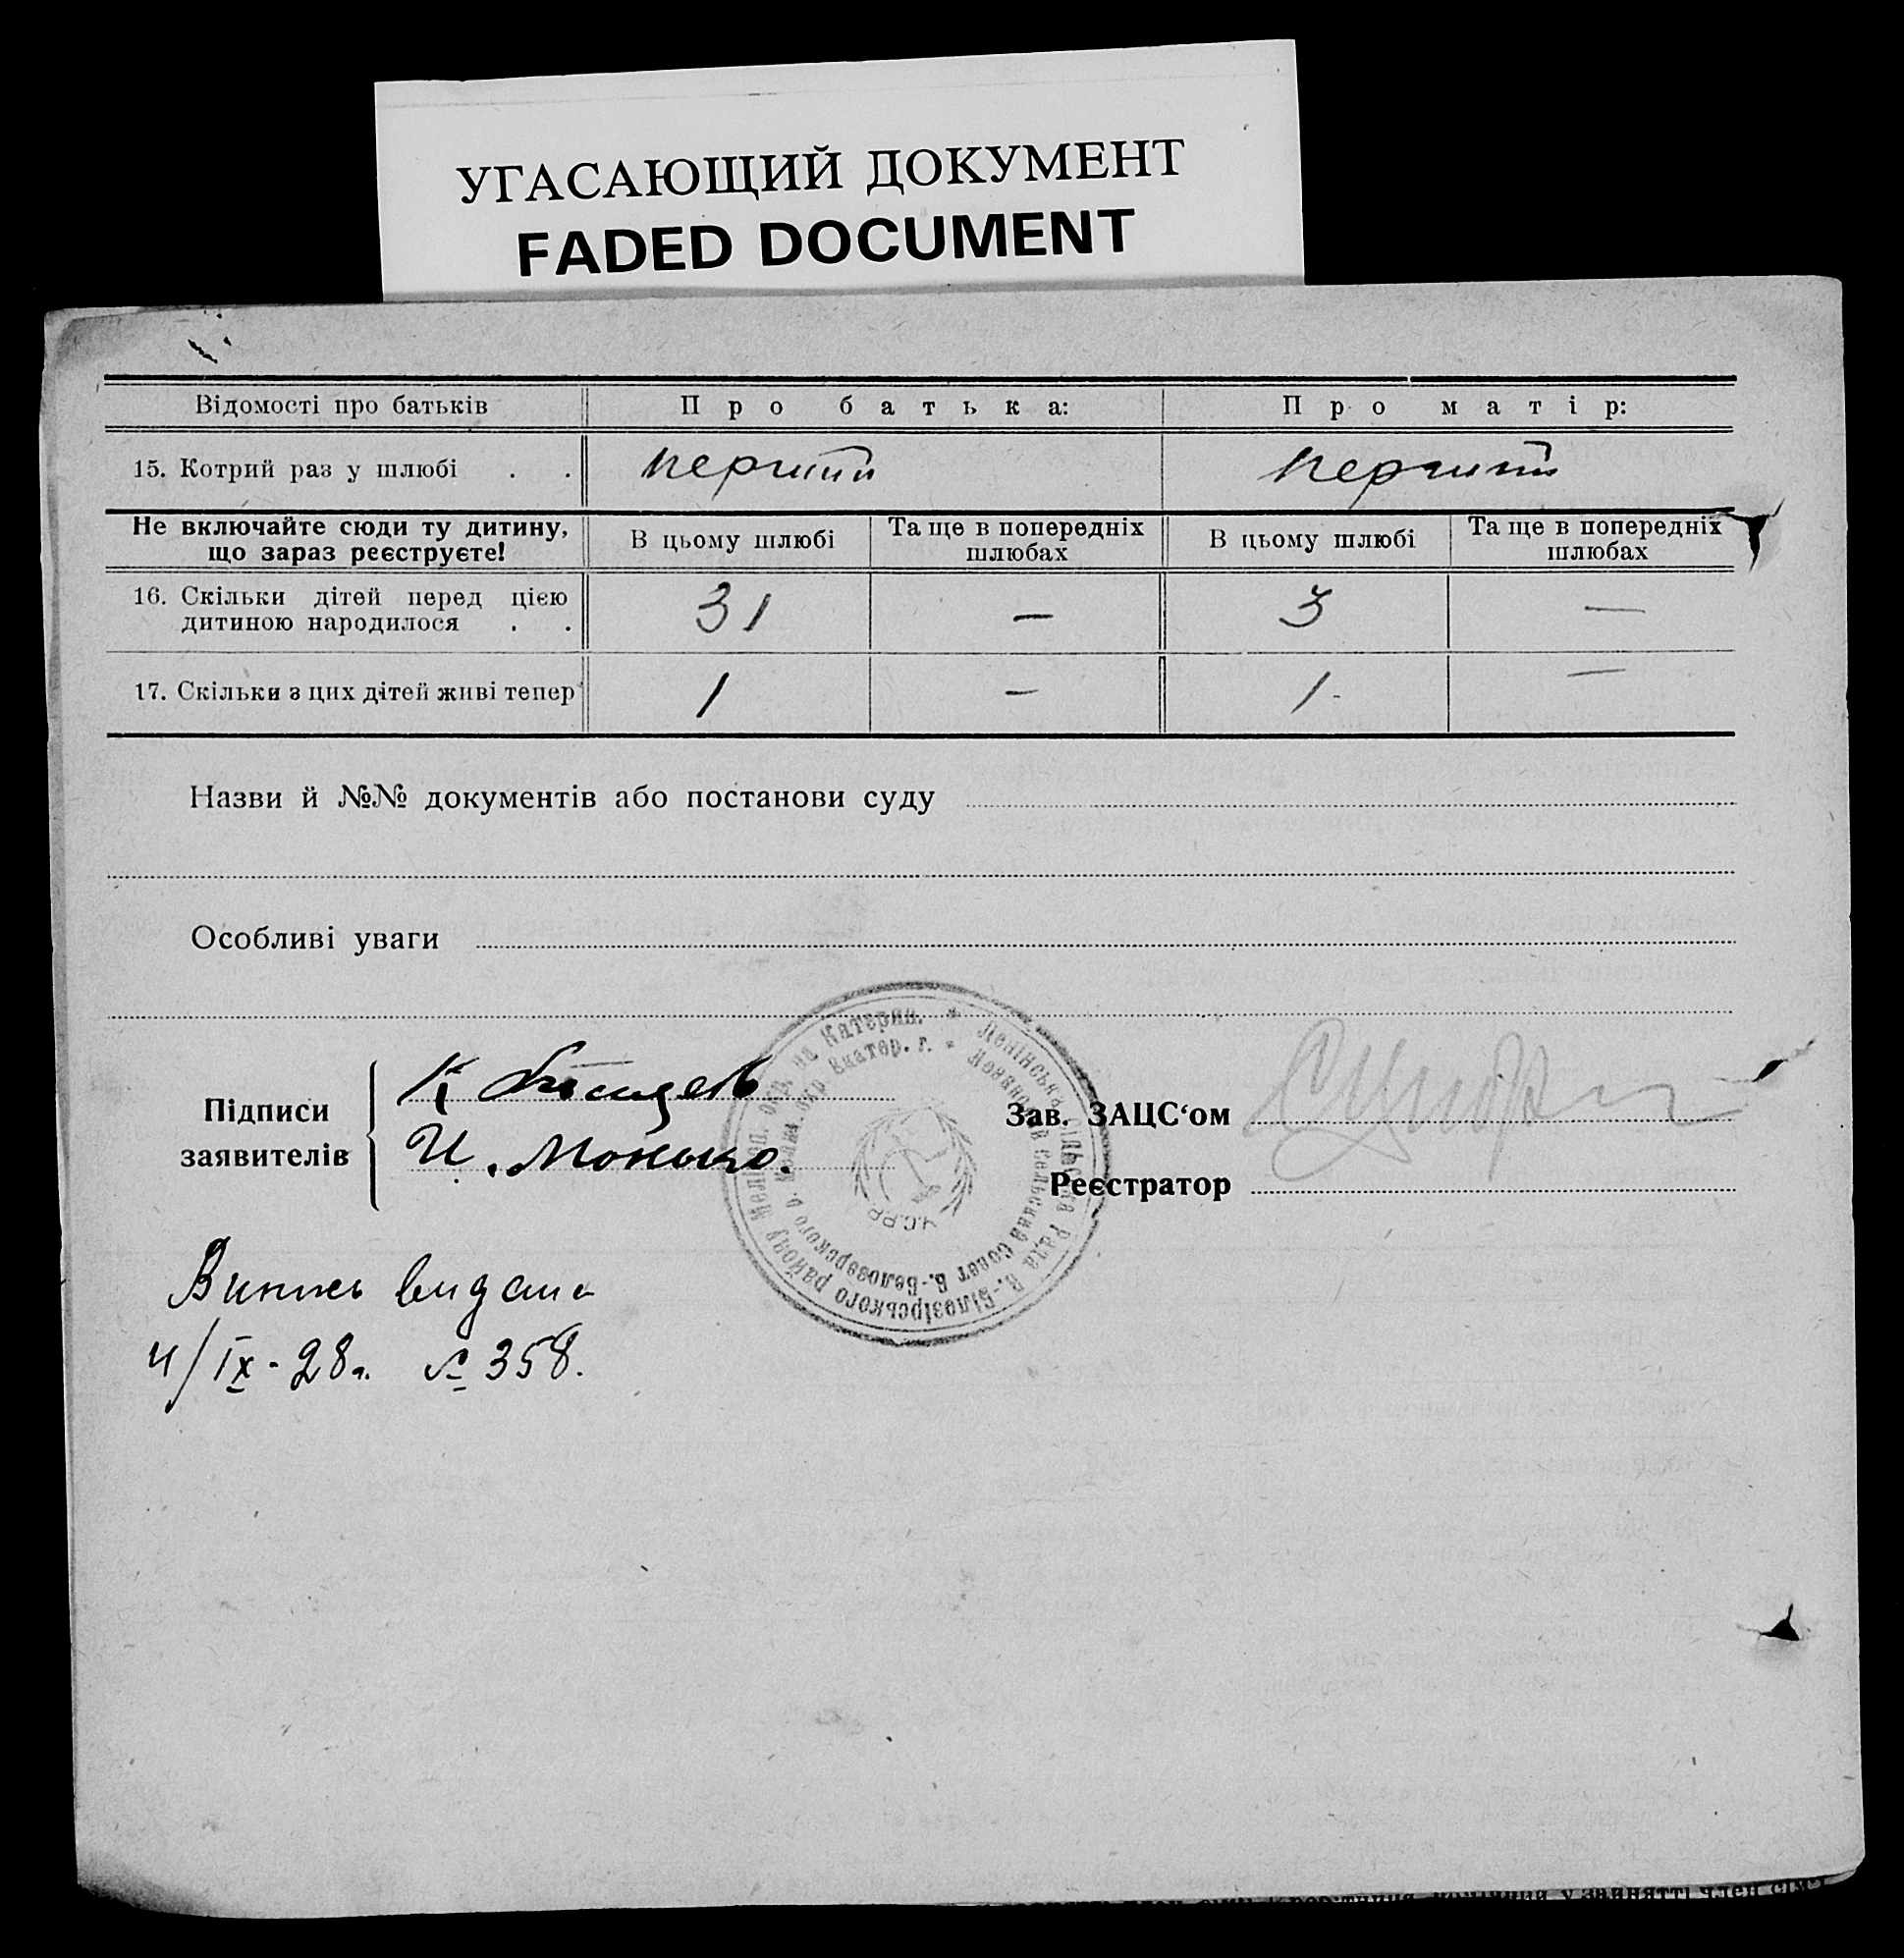 УГАСАЮЩИЙ ДОКУМЕНТ
FADED DOCUMENT
Відомості про батьків Про батька: Про матір:
15. Котрий раз у шлюбі . . перший перший
Не включайте сюди ту дитину, що зараз реєструєте! В цьому шлюбі Та ще в попередніх шлюбах В цьому шлюбі Та ще в попередніх шлюбах
16. Скільки дітей перед цією
дитиною народилося . . 31 — 3 —
17. Скільки з цих дітей живі тепер 1 — 1 —
Назви й №№ документів або постанови суду
Особливі уваги
Підписи
заявителів
К
И. Монько.
Зав. ЗАЦС‘ом
Реєстратор
Ленінська Сільська Рада В.-Білозірського району Меліт. окр. на Катерин.
Сельский Совет В.-Белозерского р. Екатер. г.
У.С.Р.Р.
Випись видана
4/IX-28г. № 358.
у зайнятті член сім'ї